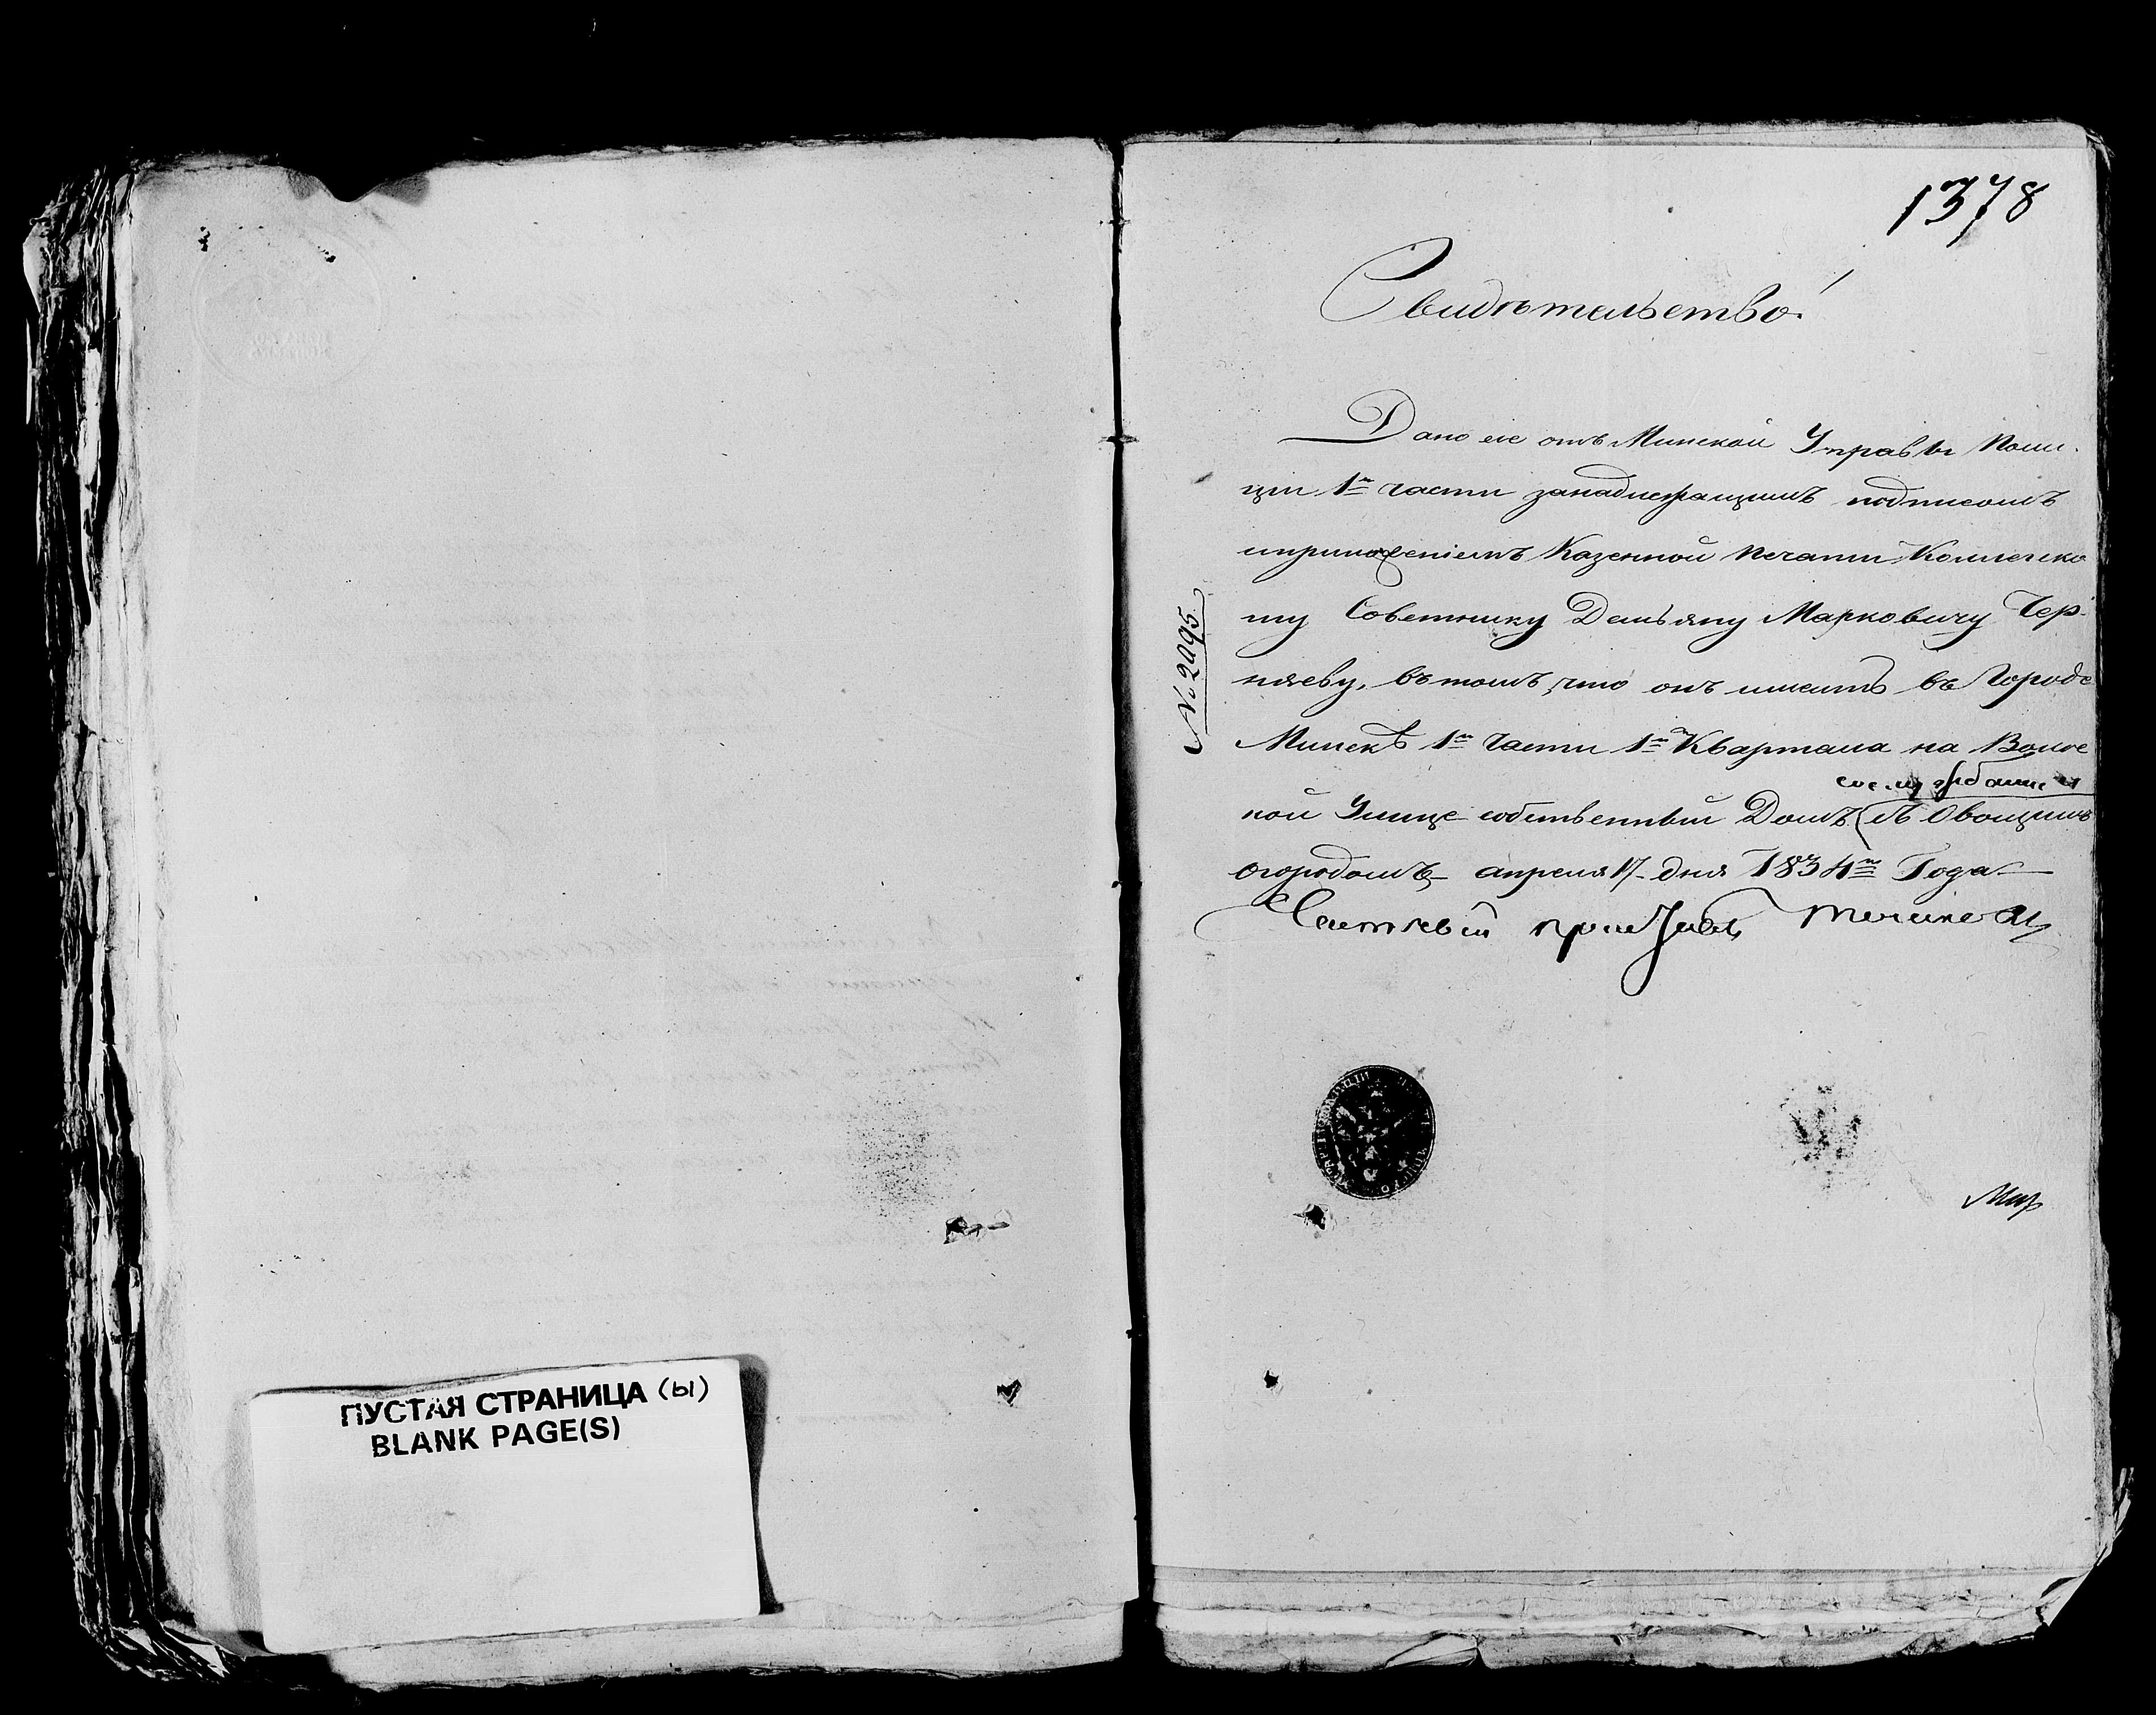 ПУСТАЯ СТРАНИЦА (ы)
BLANK PAGE(S)
1378
Свидѣтельство
№ 2095.
Дано сіе отъ Минской Управы Поли-
ціи 1й части занадлежащимъ подписомъ
иприложеніемъ Казенной печати Коллегско
му Советнику Демьяну Марковичу Чер-
няеву, въ томъ, что онъ имеитъ въ Городе
Минскѣ 1й Части 1й Квартала на
ной Улице собственный Домъ съ Овощимъ
огородомъ апреля 17 дня 1834го Года